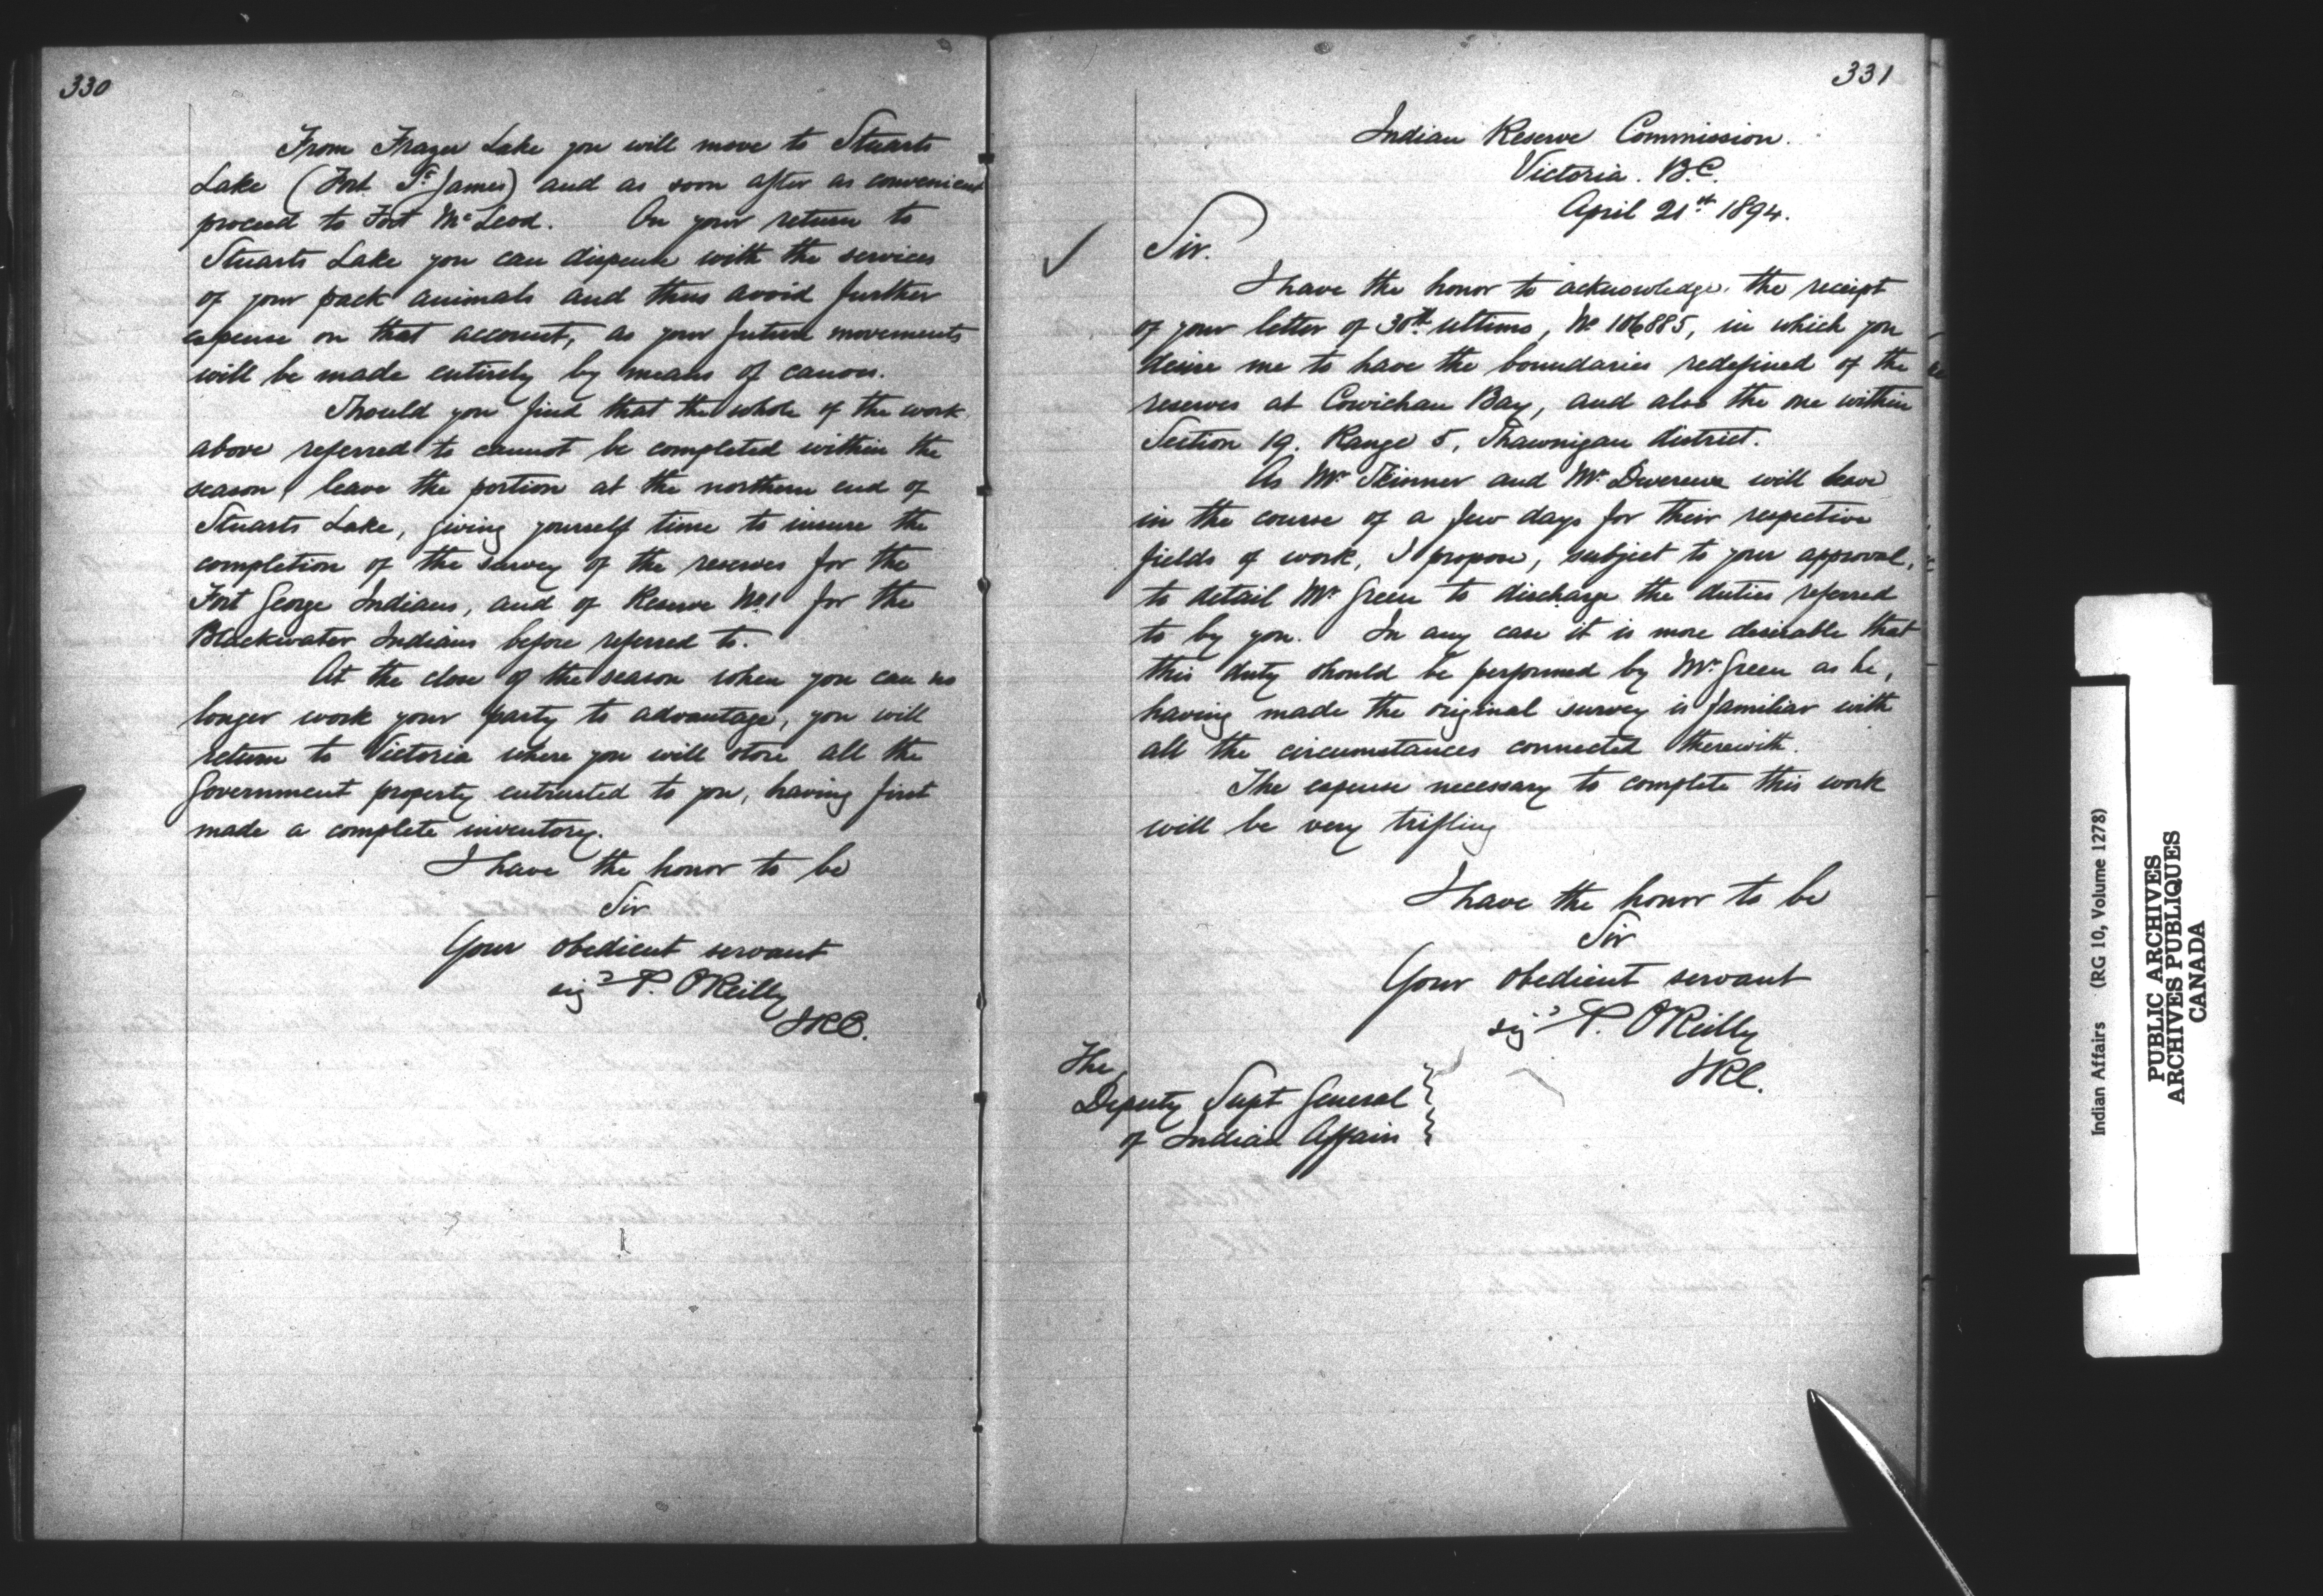 330
From Frazer Lake you will move to Stuarts
Lake (Fort St. James) and as soon after as convenient
proceed to Fort McLeod. On your return to
Stuarts Lake you can dispense with the services
of your pack animals and thus avoid further
expense on that account, as your future movements
will be made entirely by means of canoes.
Should you find that the whole of the work
above referred to cannot be completed within the
season, leave the portion at the northern end of
Stuarts Lake, giving yourself time to insure the
completion of the survey of the reserves for the
Fort George Indians, and of Reserve No 1 for the
Blackwater Indians before referred to.
At the close of the season when you can no
longer work your party to advantage, you will
return to Victoria where you will store all the
Government property entrusted to you, having first
made a complete inventory.
I have the honor to be
Sir
Your obedient servant
sigd P. O'Reilly
IRC.
331
Indian Reserve Commission.
Victoria. B.C.
April 21st 1894.
Sir.
I have the honor to acknowledge the receipt
of your letter of 30th ultimo, No 106885, in which you
desire me to have the boundaries redefined of the
reserves at Cowichan Bay, and also the one within
Section 19. Range 5, Shawnigan district.
As Mr Skinner and Mr Devereux will leave
in the course of a few days for their respective
fields of work, I propose, subject to your approval,
to detail Mr Green to discharge the duties referred
to by you. In any case it is more desirable that
this duty should be performed by Mr Green as he,
having made the original survey is familiar with
all the circumstances connected therewith.
The expense necessary to complete this work
will be very trifling
I have the honor to be
Sir
Your obedient servant
sigd P. O'Reilly
IRC.
The
Deputy Supt General
of Indian Affairs
Indian Affairs (RG 10, Volume 1278)
PUBLIC ARCHIVES
ARCHIVES PUBLIQUES
CANADA